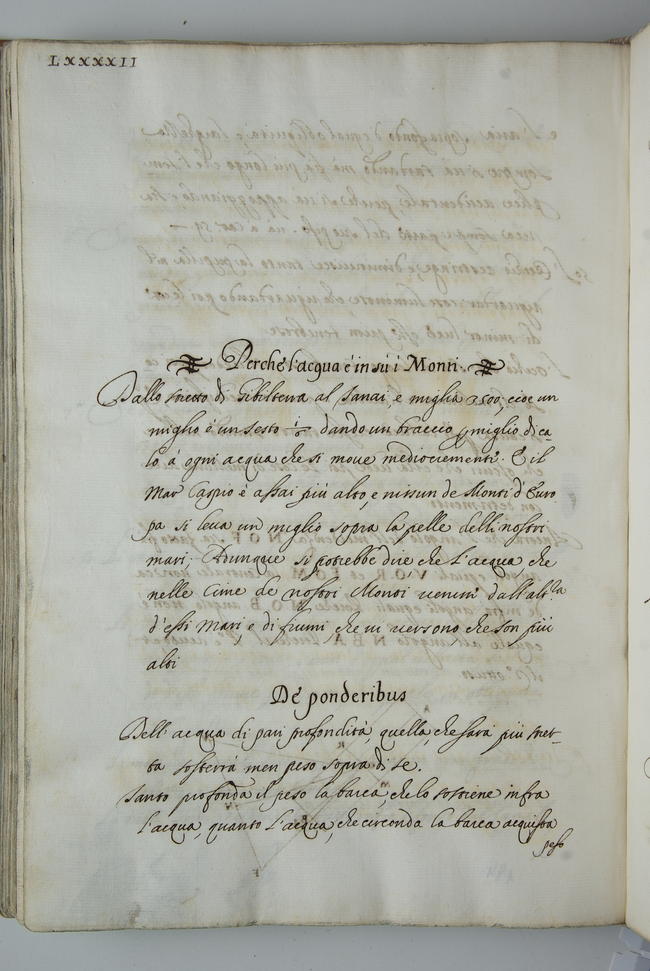 LXXXXII
Perche l'acqua è in sù i Monti.
Dallo stretto di Gibilterra al Tanai, e miglia 3500, cioe un
miglio è un sesto 1/6 dando un braccio per miglio di ca-
lo à ogni acqua che si move mediocrementè. E il
Mar Caspio è assai più alto, e nissun de Monti d'Euro
pa si leva un miglio sopra la pelle delli nostri
mari; Adunque si potrebbe dire che l'acqua, che
nelle Cime de nostri Monti venissi dall'alt.za
d'essi Mari, e di fiumi, che vi versono che son più
alti
De ponderibus
Dell'acqua di pari profondità, quella, che sarà più stret-
ta sosterrà men peso sopra di se.
Tanto profonda il peso la barca, che lo sostiene infra
l'acqua, quanto l'acqua, che circonda la barca acquista
peso